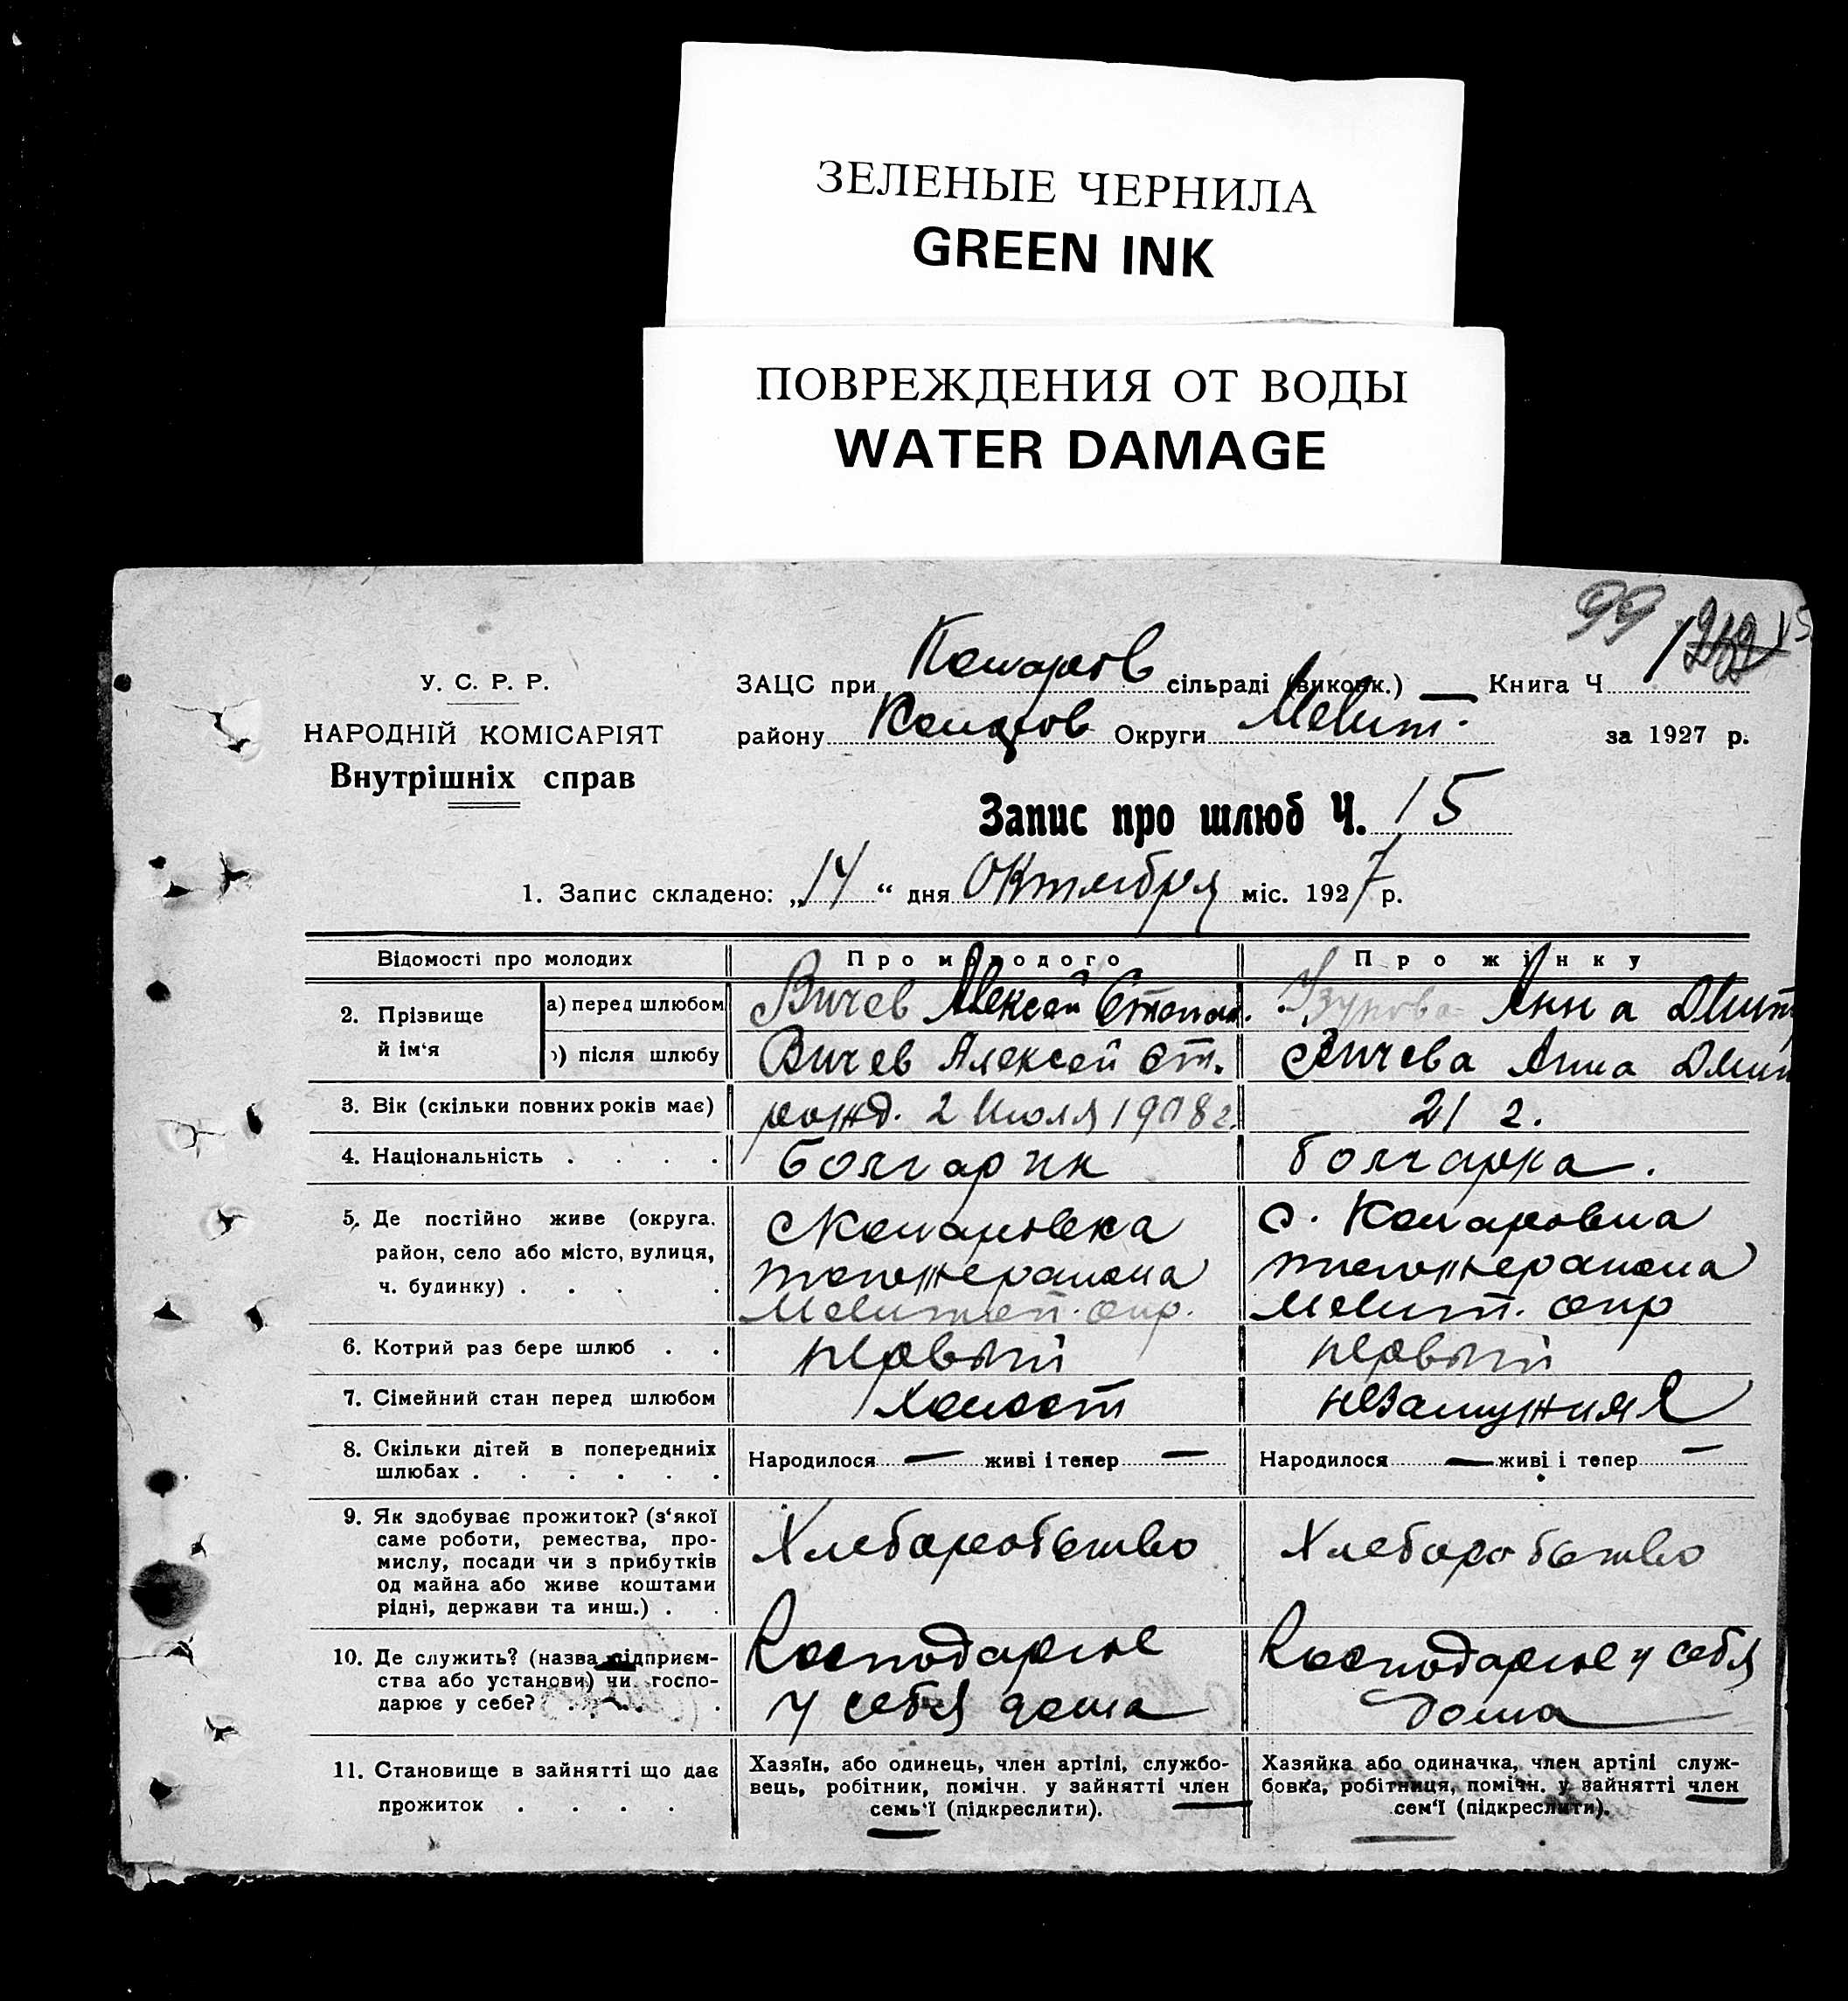 ЗЕЛЕНЫЕ ЧЕРНИЛА
GREEN INK
ПОВРЕЖДЕНИЯ ОТ ВОДЫ
WATER DAMAGE
99
У. С. Р. Р.
НАРОДНІЙ КОМІСАРІЯТ
Внутрішніх справ
ЗАЦС при Комаров сільраді (виконк.) — Книга Ч 1
району Коларов Округи Мелит. за 1927 р.
Запис про шлюб Ч. 15
1. Запис складено: „14“ дня Октября міс. 1927 р.
Відомості про молодих Про молодого Про жінку
2. Прізвище й ім‘я
а) перед шлюбом Вичев Алексей Степан. Узунова Анна Дмит
б) після шлюбу Вичев Алексей Ст. Вичева Анна Дмит
3. Вік (скільки повних років має) рожд. 2 Июля 1908 г. 21 г.
4. Національність . . . . болгарин болгарка.
5. Де постійно живе (округа, район, село або місто, вулиця, ч. будинку) . . . .
с Комаровка
Мелитоп. окр.
с. Комаровка
Мелит. окр
6. Котрий раз бере шлюб . . первый первый
7. Сімейний стан перед шлюбом холост незамужняя
8. Скільки дітей в попередниіх шлюбах . . . . . . Народилося — живі і тепер — Народилося — живі і тепер —
9. Як здобуває прожиток? (з‘якої саме роботи, ремества, промислу, посади чи з прибутків од майна або живе коштами рідні, держави та инш.) . . Хлебаробство Хлебаробство
10. Де служить? (назва підприємства або установи) чи господарює у себе? . . . .
Господарює
у себя дома
Господарює у себя
дома
11. Становище в зайнятті що дає прожиток . . . .
Хазяїн, або одинець, член артілі, службовець, робітник, помічн. у зайнятті член семь‘ї (підкреслити).
Хазяйка або одиначка, член артілі службовка, робітниця, помічн. у зайнятті член сем‘ї (підкреслити).